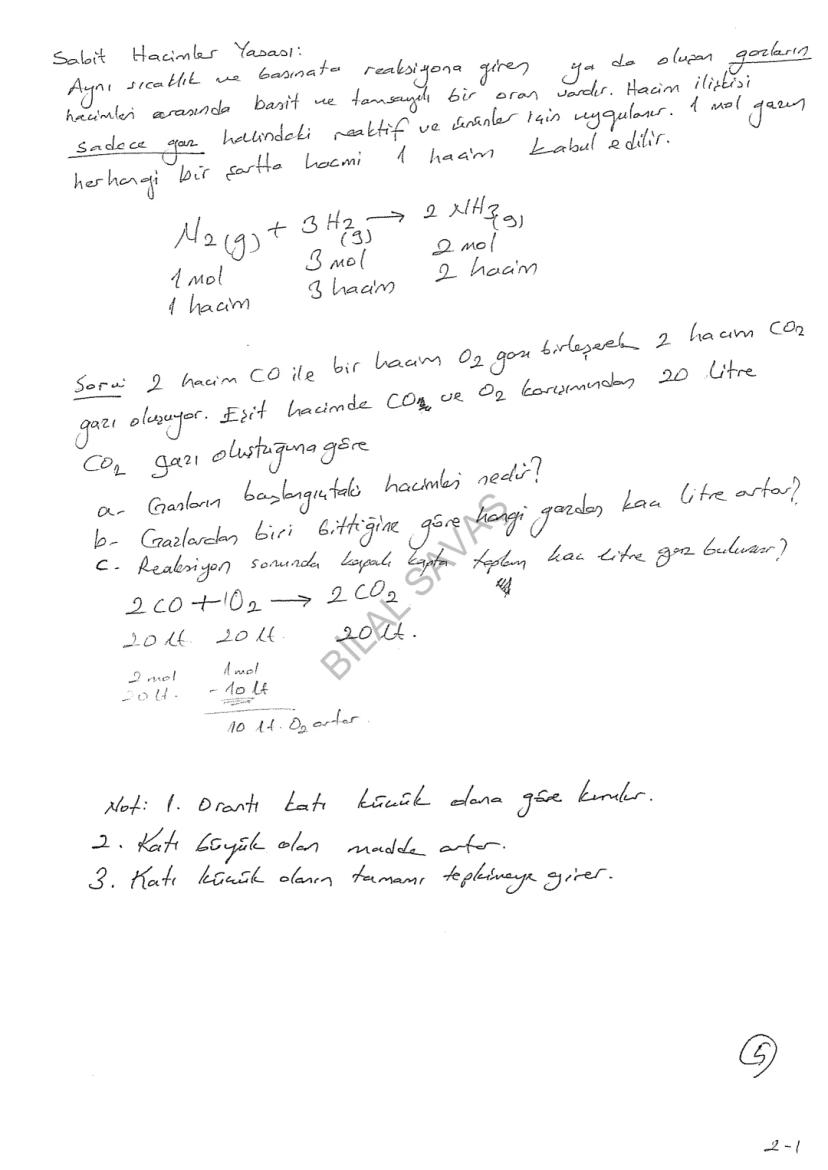 Sabit Hacimler Yasası:
Aynı sıcaklık ve basınçta reaksiyona giren ya da oluşan gazların
hacimleri arasında basit ve tamsayılı bir oran vardır. Hacim ilişkisi
sadece gaz halindeki reaktif ve ürünler için uygulanır. 1 mol gazın
herhangi bir şartta hacmi 1 hacim kabul edilir.
N2(g) + 3H2(g) → 2 NH3(g)
1 mol 3 mol 2 mol
1 hacim 3 hacim 2 hacim
Soru: 2 hacim CO ile bir hacim O2 gazı birleşerek 2 hacim CO2
gazı oluşuyor. Eşit hacimde CO ve O2 karışımından 20 litre
CO2 gazı oluştuğuna göre
a- Gazların başlangıçtaki hacimleri nedir?
b- Gazlardan biri bittiğine göre hangi gazdan kaç litre artar?
c- Reaksiyon sonunda kapalı kapta toplam kaç litre gaz bulunur?
2CO + 1O2 → 2CO2
20 lt. 20 lt. 20 lt.
2 mol 1 mol
20 lt. - 10 lt
10 lt. O2 artar.
Not: 1. Orantı katı küçük olana göre kurulur.
2. Katı büyük olan madde artar.
3. Katı küçük olanın tamamı tepkimeye girer.
BİLAL SAVAŞ
5
2-1